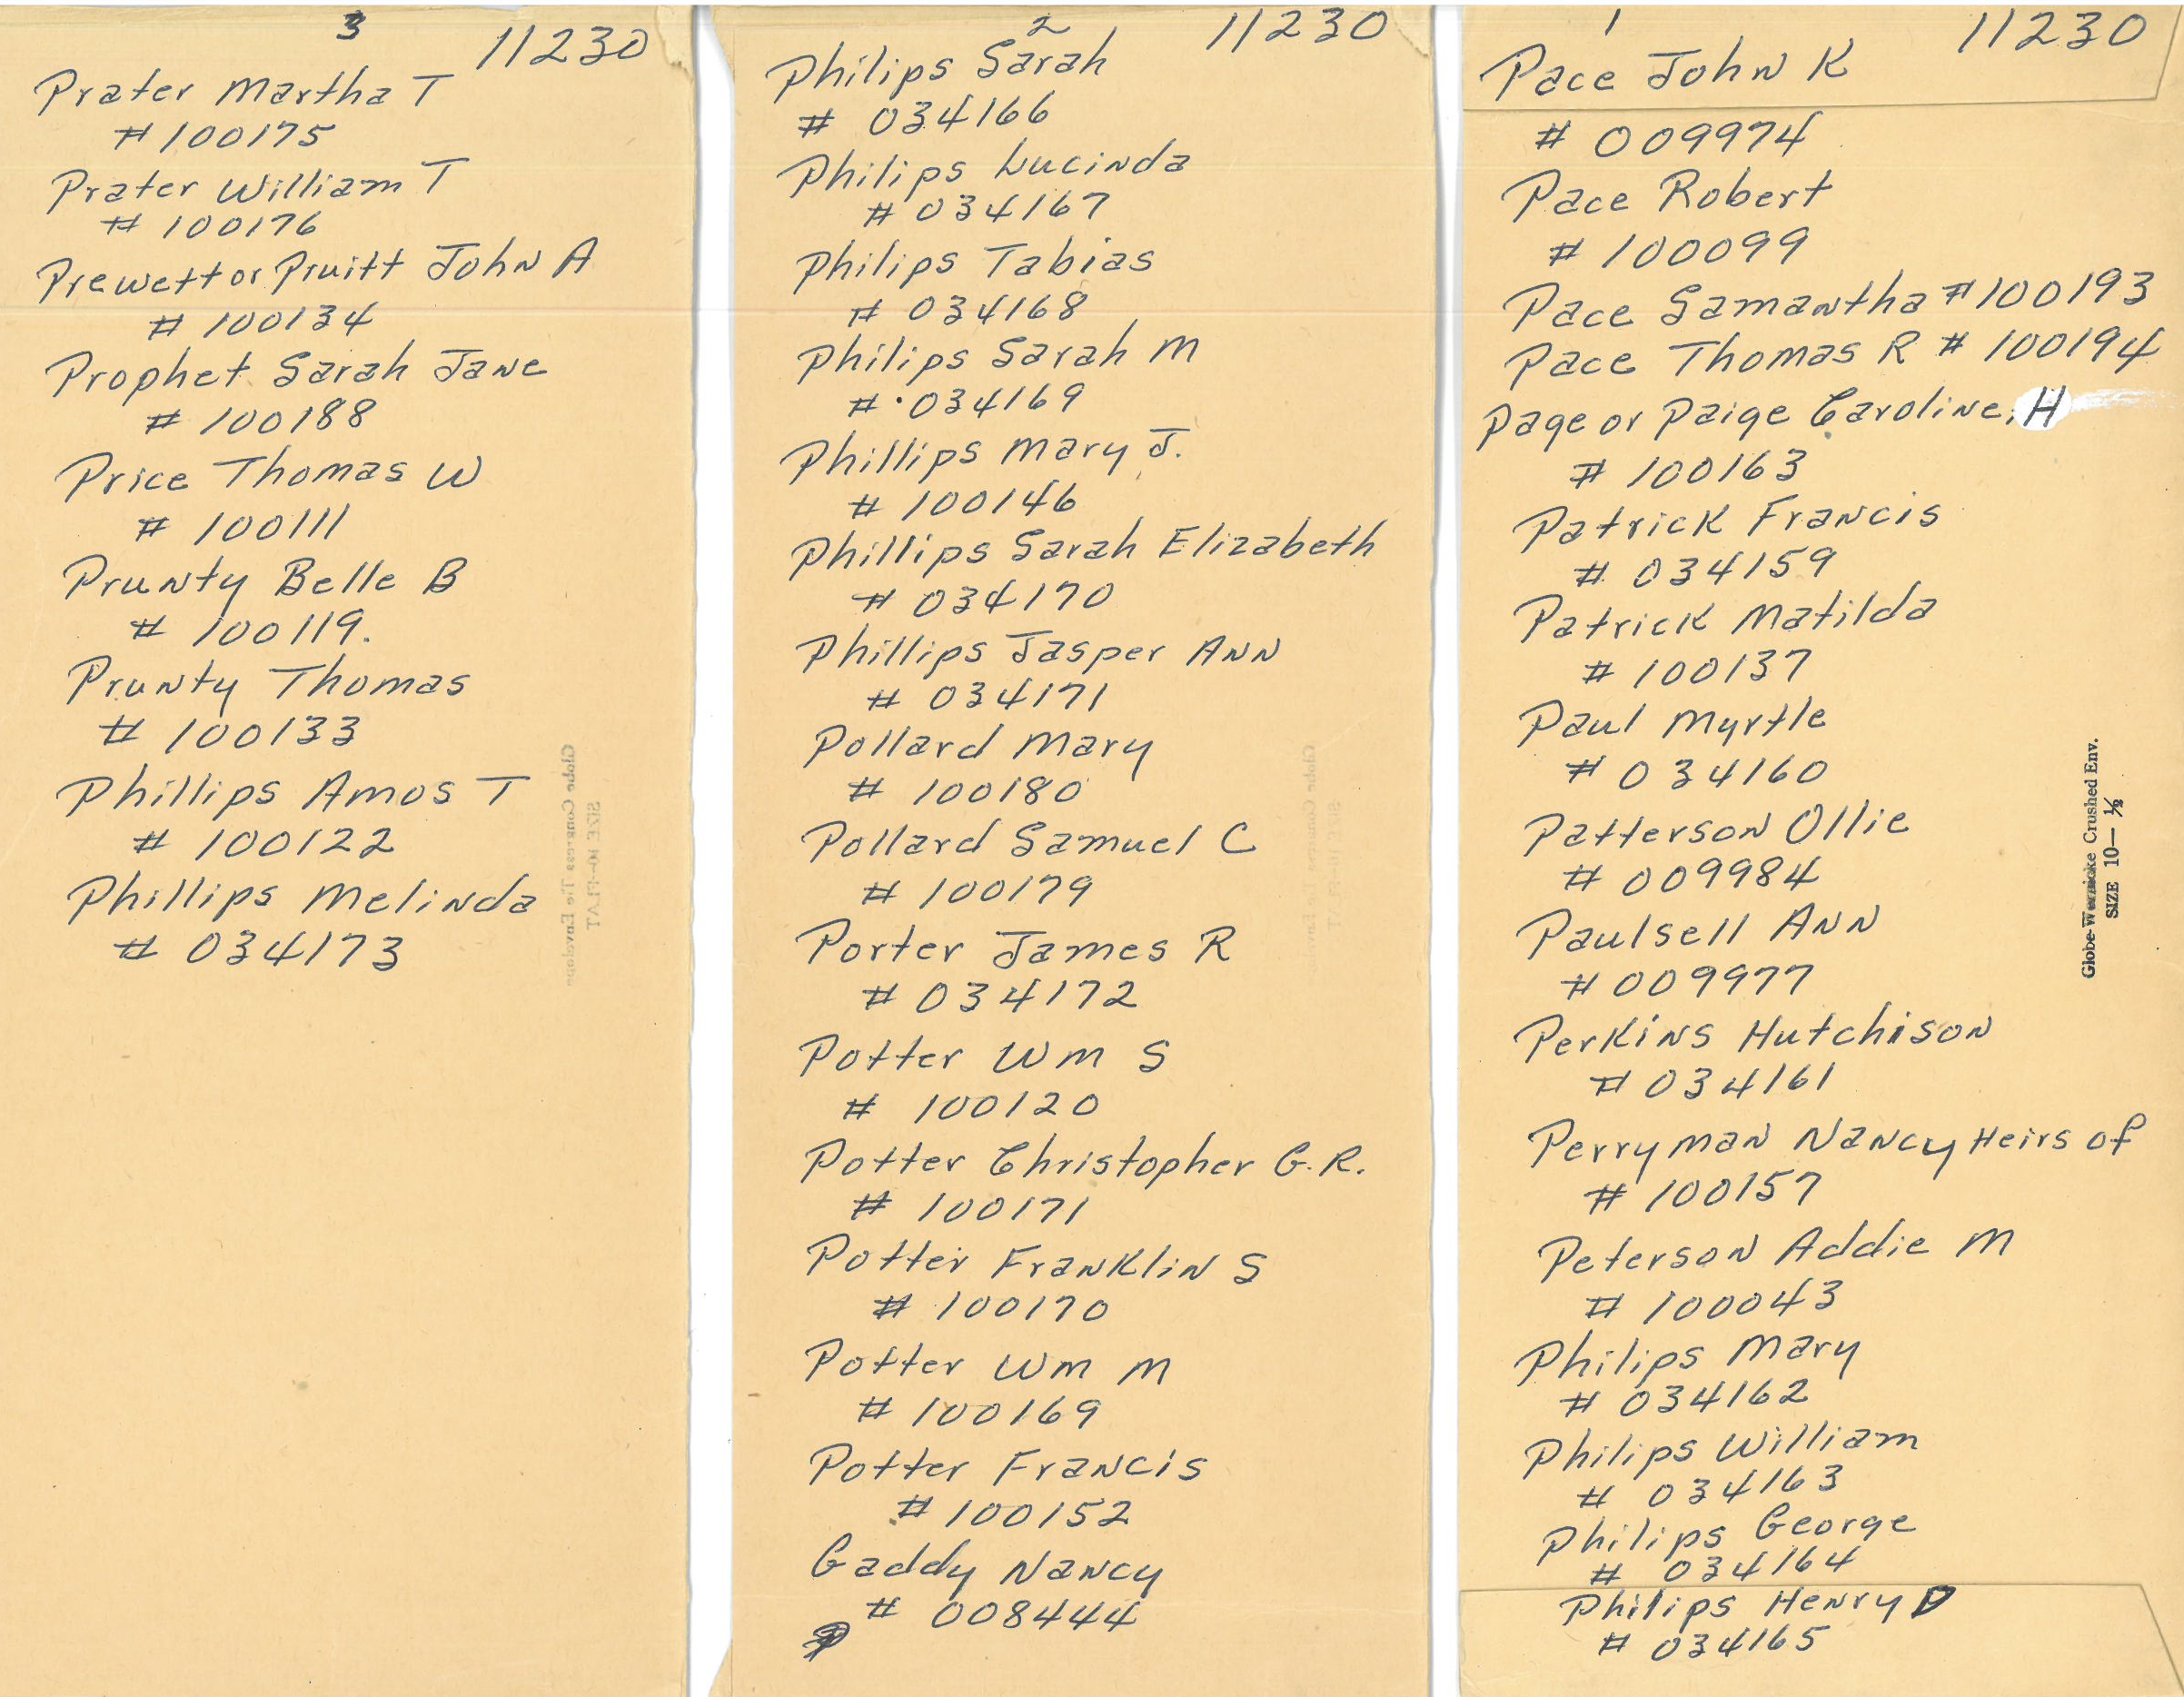 3
11230
Prater Martha T
# 100175
Prater William T
# 100176
Prewett or Pruitt John A
# 100134
Prophet Sarah Jane
# 100188
Price Thomas W
# 100111
Prunty Belle B
# 100119.
Prunty Thomas
# 100133
Phillips Amos T
# 100122
Phillips Melinda
# 034173
Globe Congress Tie Envelope
SIZE 10-FLAT
2
11230
Philips Sarah
# 034166
Philips Lucinda
# 034167
Philips Tabias
# 034168
Philips Sarah M
# 034169
Phillips Mary J.
# 100146
Phillips Sarah Elizabeth
# 034170
Phillips Jasper Ann
# 034171
Pollard Mary
# 100180
Pollard Samuel C
# 100179
Porter James R
# 034172
Potter Wm S
# 100120
Potter Christopher G.R.
# 100171
Potter Franklin S
# 100170
Potter Wm M
# 100169
Potter Francis
# 100152
Gaddy Nancy
# 008444
1
11230
Pace John K
# 009974
Pace Robert
# 100099
Pace Samantha # 100193
Pace Thomas R # 100194
Page or Paige Caroline, H
# 100163
Patrick Francis
# 034159
Patrick Matilda
# 100137
Paul Myrtle
# 034160
Patterson Ollie
# 009984
Paulsell Ann
# 009977
Perkins Hutchison
# 034161
Perryman Nancy Heirs of
# 100157
Peterson Addie M
# 100043
Philips Mary
# 034162
Philips William
# 034163
Philips George
# 034164
Philips Henry D
# 034165
Globe-Wernicke Crushed Env.
SIZE 10— ½